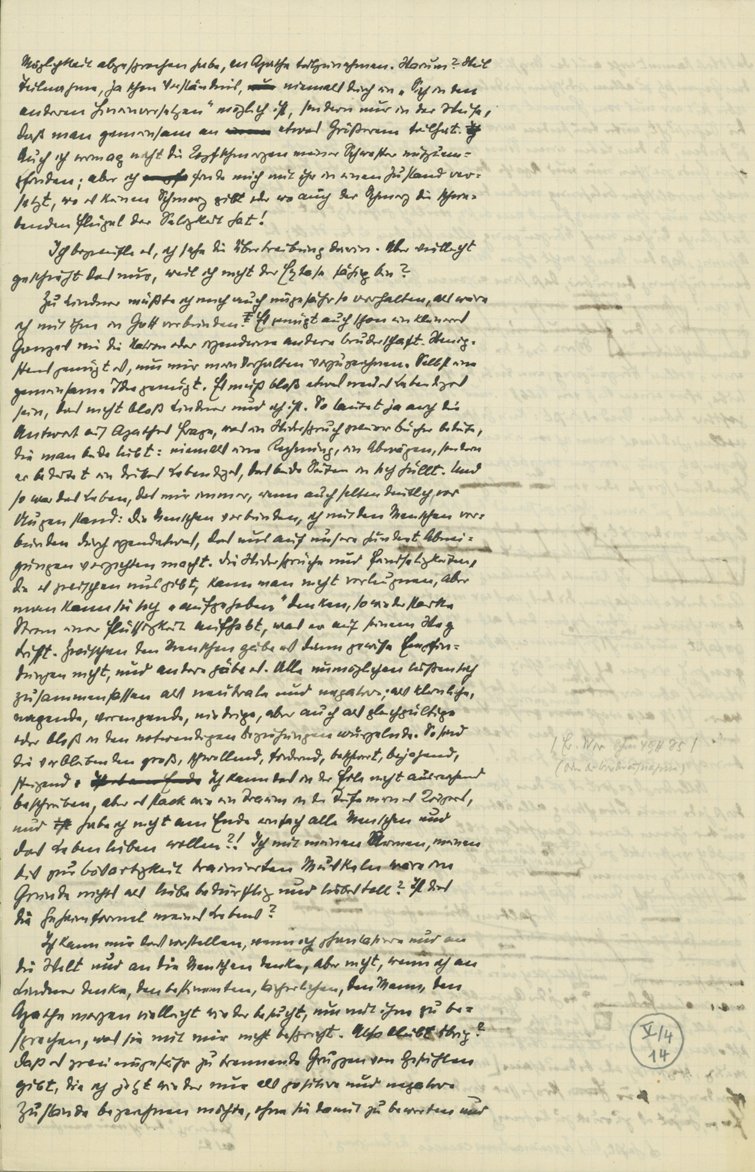 Möglichkeit abgesprochen habe, an Agathe teilzunehmen. Warum? Weil
Teilnahme, ja schon Verständnis, niemals durch ein „Sich in den
anderen Hineinversetzen" möglich ist, sondern nur in der Weise,
daß man gemeinsam an etwas Größerem teilhat.
Auch ich vermag nicht die Kopfschmerzen meiner Schwester mitzuem-
pfinden; aber ich finde mich mit ihr in einen Zustand ver-
setzt, wo es keinen Schmerz gibt oder wo auch der Schmerz die schwe-
benden Flügel der Seligkeit hat!
Ich bezweifle es, ich sehe die Übertreibung darin. Aber vielleicht
geschieht das nur, weil ich nicht der Extase fähig bin?
Zu Lindner müßte ich mich auch ungefähr so verhalten, als wäre
ich mit ihm in Gott verbunden. Es genügt auch schon ein kleineres
Ganzes wie die Nation oder irgendeine andere Bruderschaft. Wenig-
stens genügt es, um mir mein Verhalten vorzuzeichnen. Selbst eine
gemeinsame Idee genügt. Es muß bloß etwas neues Lebendiges
sein, das nicht bloß Lindner und ich ist. So lautet ja auch die
Antwort auf Agathes Frage, was ein Widerspruch zweier Bücher bedeute,
die man beide liebt: niemals eine Rechnung, ein Abwägen, sondern
er bedeutet ein drittes Lebendiges, das beide Seiten in sich hüllt. Und
so war das Leben, das mir immer, wenn auch selten deutlich, vor
Augen stand: die Menschen verbunden, ich mit den Menschen ver-
bunden durch irgendetwas, das uns auf unsere hundert Abnei-
gungen verzichten macht. Die Widersprüche und Feindseligkeiten,
die es zwischen uns gibt, kann man nicht verleugnen, aber
man kann sie sich „aufgehoben" denken, so wie der starke
Strom einer Flüssigkeit aufhebt, was er auf seinem Weg
trifft. Zwischen den Menschen gäbe es dann gewisse Empfin-
dungen nicht, und andere gäbe es. Alle unmöglichen ließen sich
zusammenfassen als neutrale und negative; als kleinliche,
nagende, verengende, niedrige, aber auch als gleichgültige
oder bloß in den notwendigen Beziehungen wurzelnde. So sind
die verbleibenden groß, schwellend, fordernd, bejahend,
steigend: ich kann das in der Eile nicht ausreichend
beschreiben, aber es
und habe ich nicht am Ende einfach alle Menschen und
das Leben lieben wollen?! Ich mit meinen Armen, meinen
bis zur Bösartigkeit trainierten Muskeln wäre im
Grunde nichts als liebebedürftig und liebestoll? Ist das
die Geheimformel meines Lebens?
Ich kann mir das vorstellen, wenn ich phantasiere und an
die Welt und an die Menschen denke, aber nicht, wenn ich an
Lindner denke, den bestimmten, lächerlichen, den Mann, den
Agathe morgen vielleicht wieder besucht, um mit ihm zu be-
sprechen, was sie mit mir nicht bespricht. Also bleibt übrig?
Daß es zwei ungefähr zu trennende Gruppen von Gefühlen
gibt, die ich jetzt wieder nur als positive und negative
Zustände bezeichnen möchte, ohne sie damit zu bewerten und
V/4
14